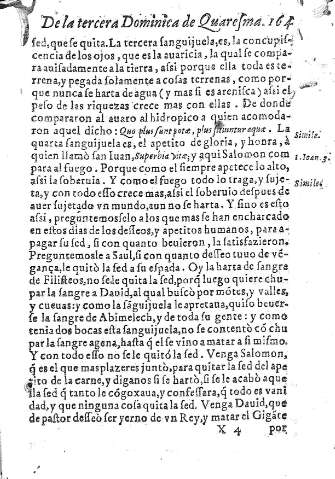 De la tercera Dominica de Quaresma. 164
sed, que se quita. La tercera sanguijuela, es, la concupis-
cencia de los ojos, que es la auaricia, la qual se compa
ra auisadamente a la tierra, assi porque ella toda es te-
rrena, y pegada solamente a cosas terrenas, como por-
que nunca se harta de agua ( y mas si es arenisca) assi el
peso de las riquezas crece mas con ellas. De donde
compararon al auaro al hidropico a quien acomoda-
ron aquel dicho: Quo plus sunt potæ, plus sitiuntur aquæ. La
quarta sanguijuela es, el apetito de gloria, y honra, à
quien llamò san Iuan, Superbia vitæ; y aqui Salomon com
para al fuego. Porque como el siempre apetece lo alto,
assi la soberuia. Y como el fuego todo lo traga, y suje-
ta, y con todo esso crece mas, assi el soberuio despues de
auer sujetado vn mundo, aun no se harta. Y sino es esto
assi, preguntemoselo a los que mas se han encharcado
en estos dias de los desseos, y apetitos humanos, para a-
pagar su sed, si con quanto beuieron, la satisfazieron.
Preguntemosle a Saul, si con quanto desseo tuuo de vē-
gança, le quitò la sed a su espada. Oy la harta de sangre
de Filisteos, no se le quita la sed, porq̃ luego quiere chu-
par la sangre a Dauid, al qual buscò por mōtes, y valles,
y cueuas: y como la sāguijuela le apretaua, quiso beuer-
se la sangre de Abimelech, y de toda su gente: y como
tenia dos bocas esta sanguijuela, no se contentò cō chu
par la sangre agena, hasta q̃ el se vino a matar a si mismo.
Y con todo esso no se le quitò la sed. Venga Salomon,
q̃ es el que mas plazeres juntò, para quitar la sed del ape
tito de la carne, y diganos si se hartò, si se le acabò aque
lla sed q̃ tanto le cōgoxaua, y confessara, q̃ todo es vani
dad, y que ninguna cosa quita la sed. Venga Dauid, que
de pastor desseò ser yerno de vn Rey, y matar el Gigāte
X 4 por
Simile.
1. Ioan. 2.
Simile.